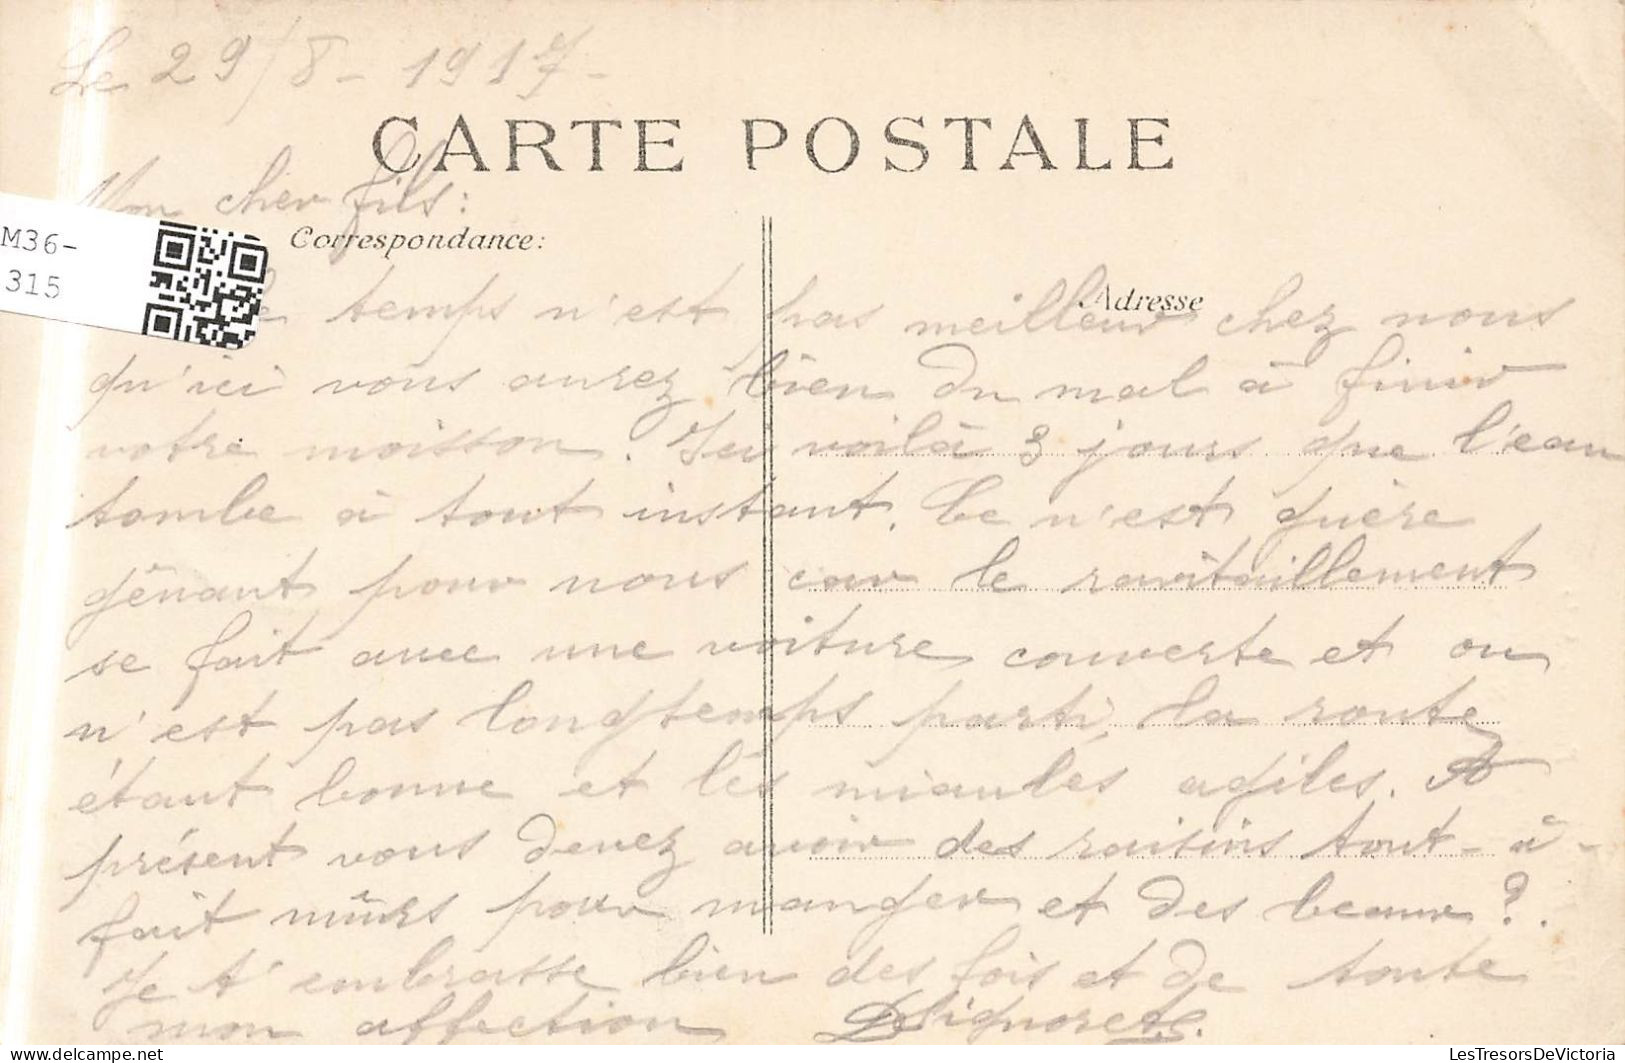 Le 29/8 - 1917 -
CARTE POSTALE
Mon cher fils :
M36-
315
Correspondance:
Adresse
le temps n'est pas meilleur chez nous
qu'ici vous aurez bien du mal à finir
votre moisson. Ici voilà 3 jours que l'eau
tombe à tout instant. Ce n'est guère
gênant pour nous car le ravitaillement
se fait avec une voiture couverte et on
n'est pas longtemps parti, la route
étant bonne et les agiles. A
présent vous devez avoir des raisins tout-à-
fait mûrs pour manger et des beaux ?.
Je t'embrasse bien des fois et de toute
mon affection Signoret
LesTresorsDeVictoria
https://www.delcampe.net